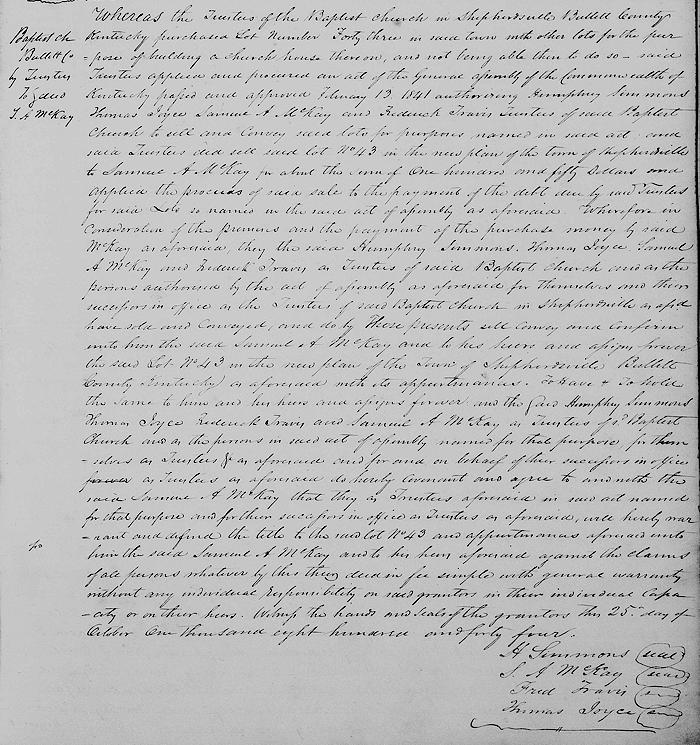 Baptist Ch
Bullitt Co
by Trustees
To } deed
S. A McKay
Whereas the Trustees of the Baptist Church in Shepherdsville Bullitt County
Kentucky purchased Lot Number Forty three in said town with other lots for the pur
-pose of building a church house thereon, and not being able then to do so - said
Trustees applied and procured an act of the General assembly of the Commonwealth of
Kentucky passed and approved February 12 1841 authorizing Humphrey Simmons
Thomas Joyce Samuel A McKay and Frederick Travis Trustees of said Baptist
Church to sell and Convey said lots for purposes named in said act and
said Trustees did sell said lot No 43 in the new plan of the town of Shepherdsville
to Samuel A. McKay for about the sum of One hundred and fifty Dollars and
applied the proceeds of said sale to the payment of the debt due by said Trustees
for said Lots so named in the said act of assembly as aforesaid. Wherefore in
Consideration of the premises and the payment of the purchase money by said
McKay as aforesaid, they the said Humphrey Simmons. Thomas Joyce Samuel
A McKay and Frederick Travis as Trustees of said Baptist Church and as the
persons authorised by the act of assembly as aforesaid for themselves and their
successors in office as the Trustees of said Baptist Church in Shepherdsville as afsd
have sold and Conveyed, and do by These presents sell Convey and Confirm
unto him the said Samuel A McKay and to his heirs and assigns forever
the said Lot No 43 in the new plan of the Town of Shepherdsville Bullitt
County Kentucky as aforesaid with its appurtenances. To have & To hold
the same to him and his heirs and assigns forever and the said Humphry Simmons
Thomas Joyce Frederick Travis and Samuel A McKay as Trustees of sd Baptist
Church and as the persons in said act of assembly named for that purpose for them
-selves as Trustees as aforesaid and for and on behalf of their successors in office
forever as Trustees as aforesaid do hereby Covenant and agree to and with the
said Samuel A McKay that they as Trustees aforesaid in said act named
for that purpose and for their successors in office as Trustees as aforesaid, will hereby war
-rant and defend the title to the said lot No 43 and appurtenances aforesaid unto
him the said Samuel A McKay and to his heirs aforesaid against the claims
of all persons whatever by this their deed in fee simple with general warranty
without any individual responsibility on said grantors in their individual Capa
-city or on their heirs. Witness the hands and seals of the grantors this 25th day of
October One thousand eight hundred and forty four.
H Simmons (seal)
S. A McKay (seal)
Fred Travis (seal)
Thomas Joyce (seal)